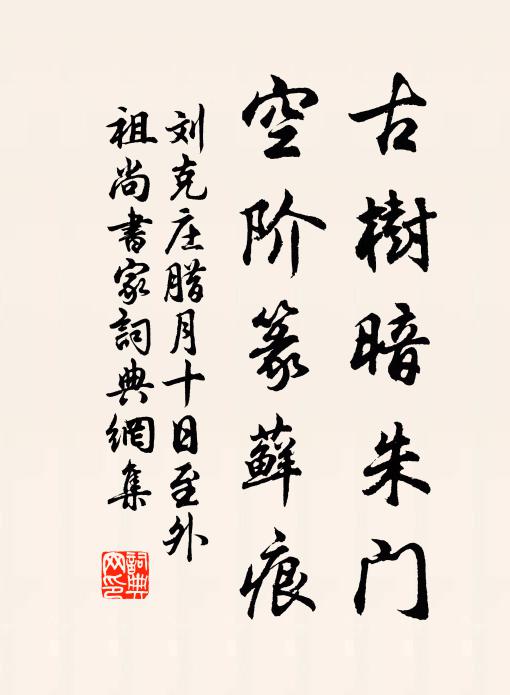 古樹暗朱门
空阶篆藓痕
刘克庄腊月十日至外
祖尚書家詞典網集
詞典